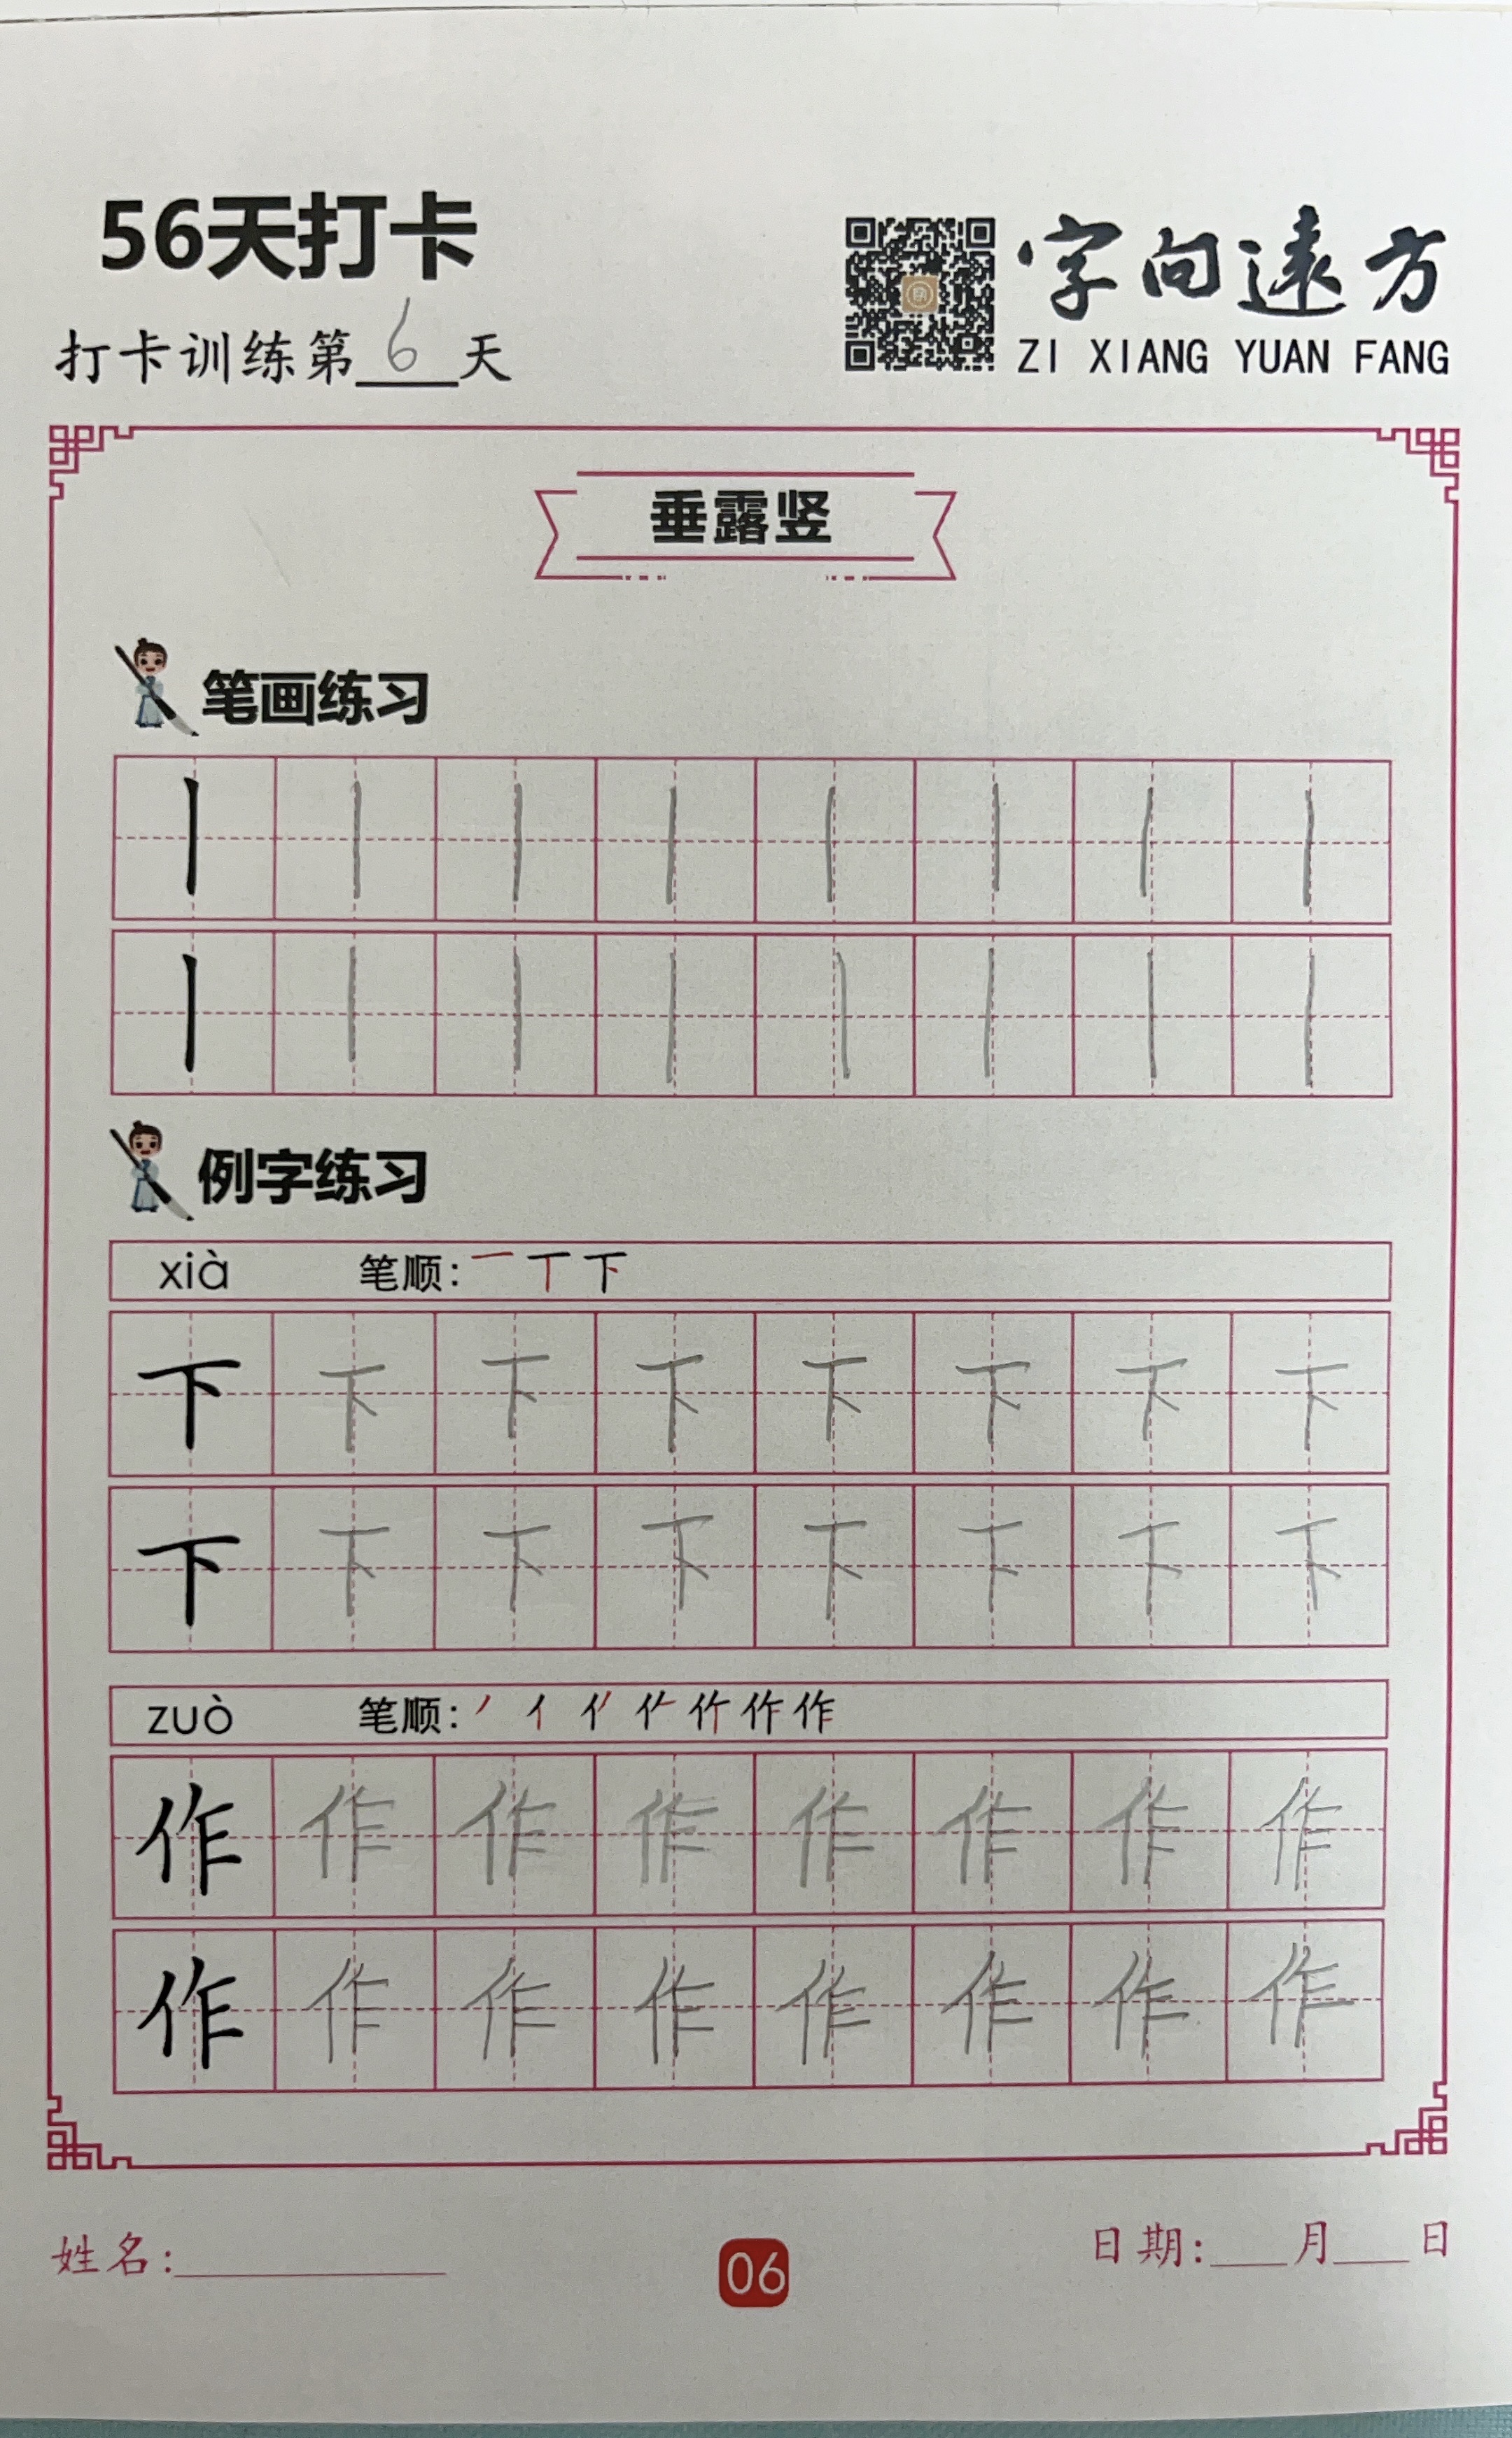 56天打卡
打卡训练第6天
字向遠方
ZI XIANG YUAN FANG
垂露竖
笔画练习
丨 丨 丨 丨 丨 丨 丨 丨
丨 丨 丨 丨 丨 丨 丨 丨
例字练习
xià 笔顺: 一 丅 下
下 下 下 下 下 下 下 下
下 下 下 下 下 下 下 下
zuò 笔顺:
作 作 作 作 作 作 作 作
作 作 作 作 作 作 作 作
姓名:
06
日期: 月 日